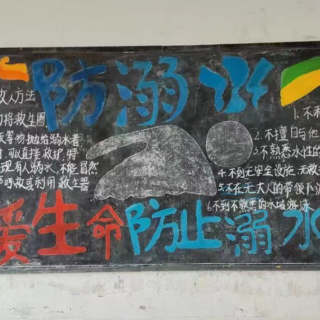 防溺水
救人方法
将救生圈
等物抛给溺水者
可以直接救护,特
现有人溺水,不能冒然
呼救或利用救生器
1.不
2.不擅自与他
3.不熟悉水性的
4.不到无安全设施、无救
5.不在无大人的带领下游
6.不到不熟悉的水域游泳
爱生命防止溺水